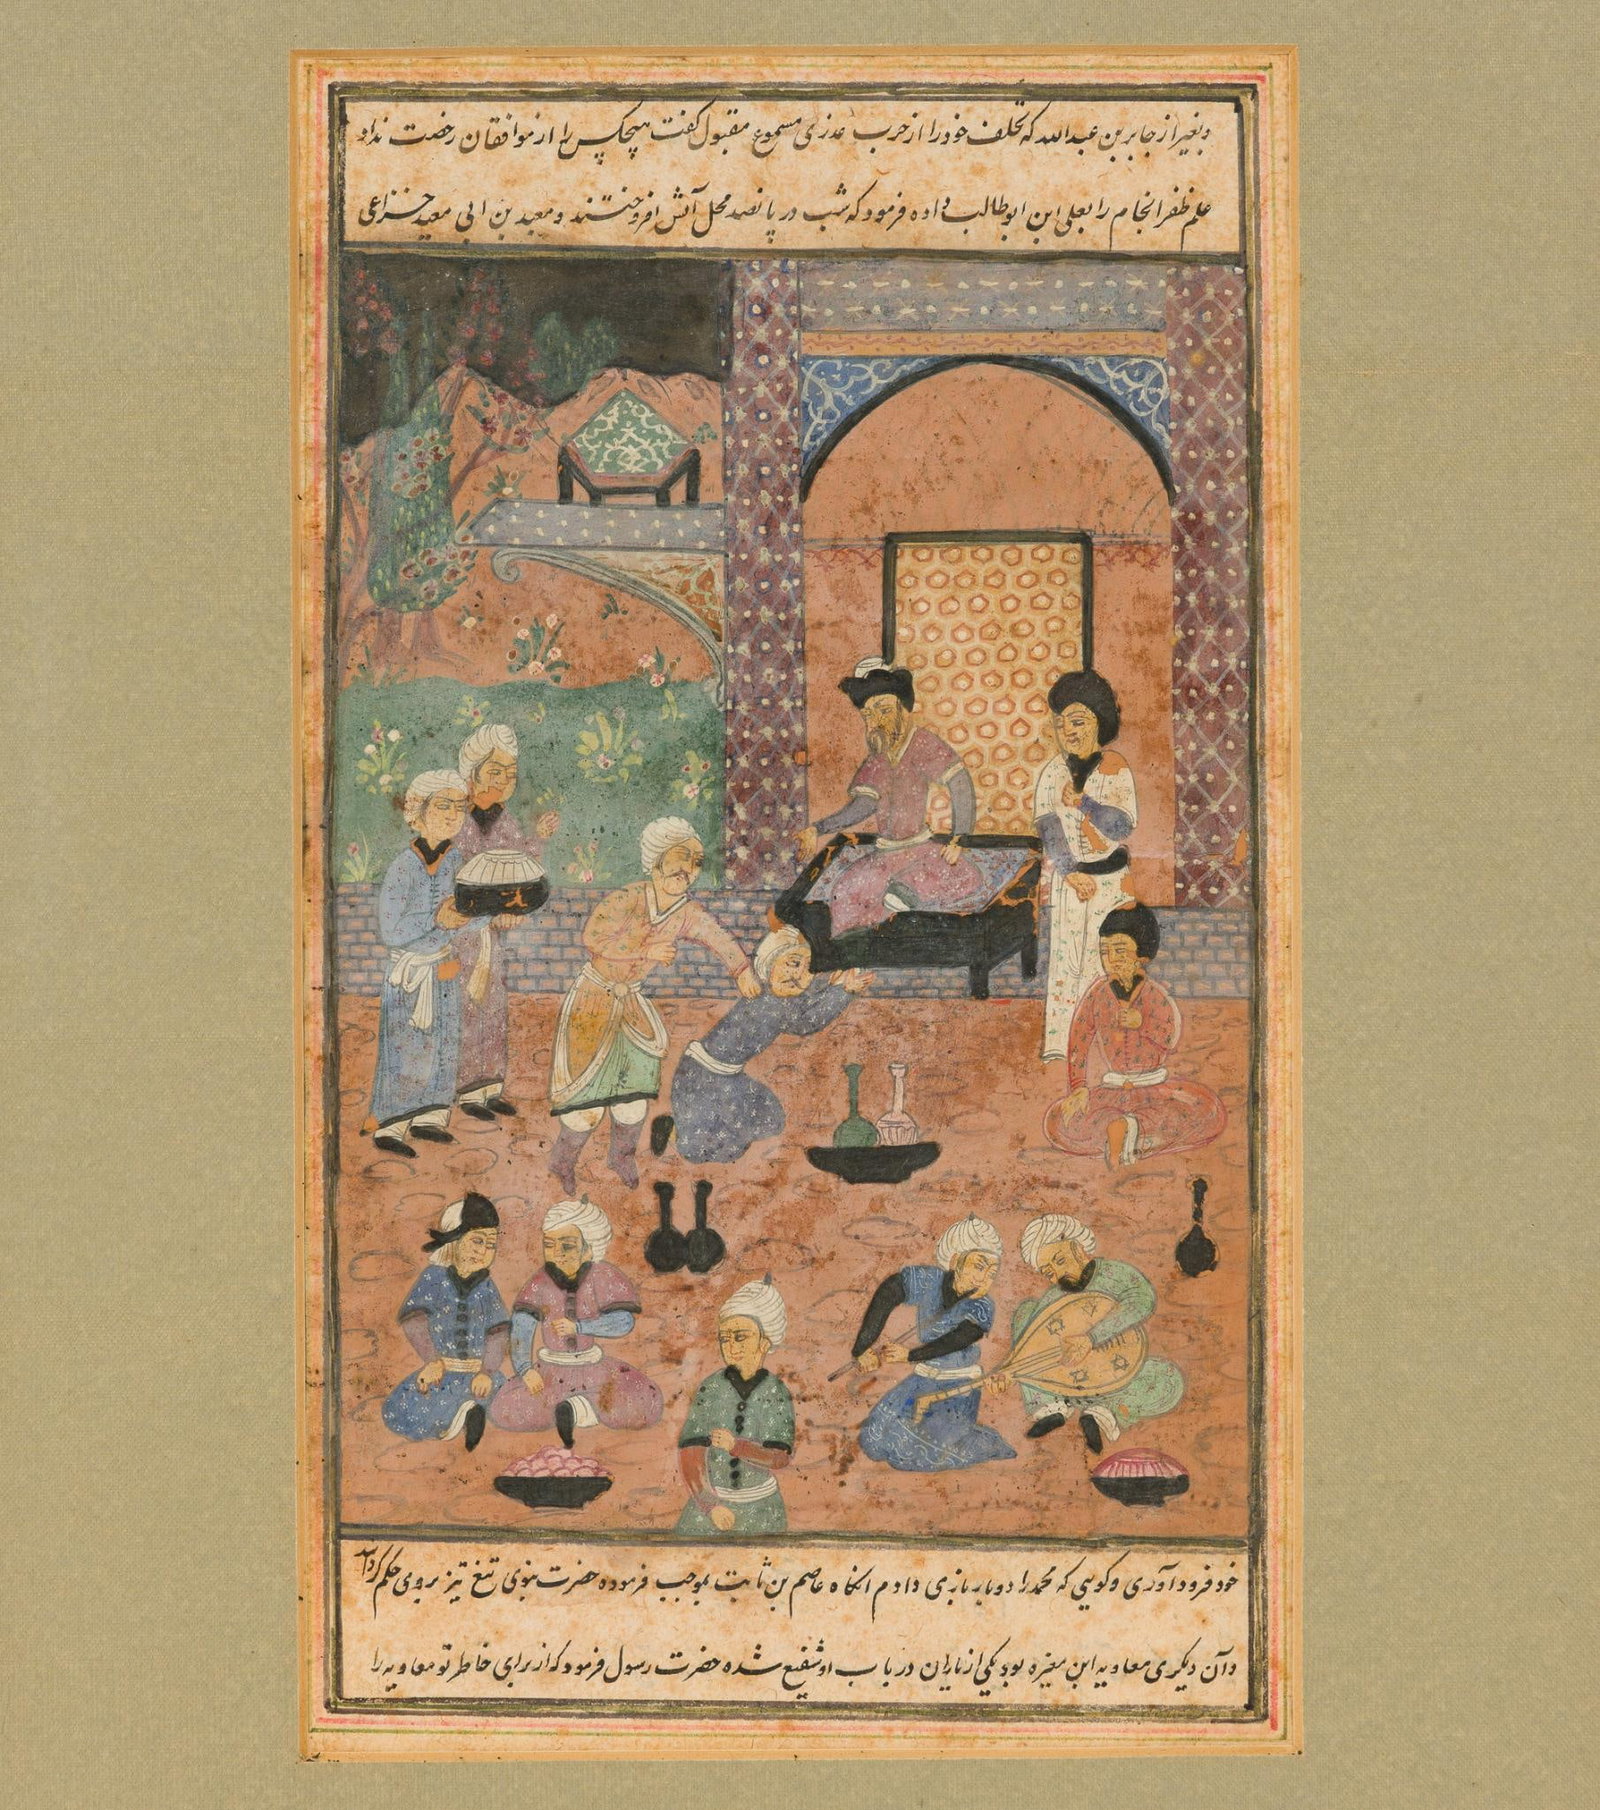 و بغیر از جابر بن عبدالله که تخلف خود را از حرب عذری مسموع مقبول گفت هیچکس را از موافقان رخصت نداد
علم ظفر انجام را بعلی ابن ابوطالب داده فرمود که شب در پانصد محل آتش افروختند و معبد بن ابی معبد خزاعی
خود فرود آوری و گویی که محمد را دو بار بازی دادم آنگاه عاصم بن ثابت بموجب فرموده حضرت نبوی تیغ تیز بروی حکم کرد
و آن دیگری معاویه ابن مغیره بود یکی از یاران در باب او شفیع شده حضرت رسول فرمود که از برای خاطر تو معاویه را